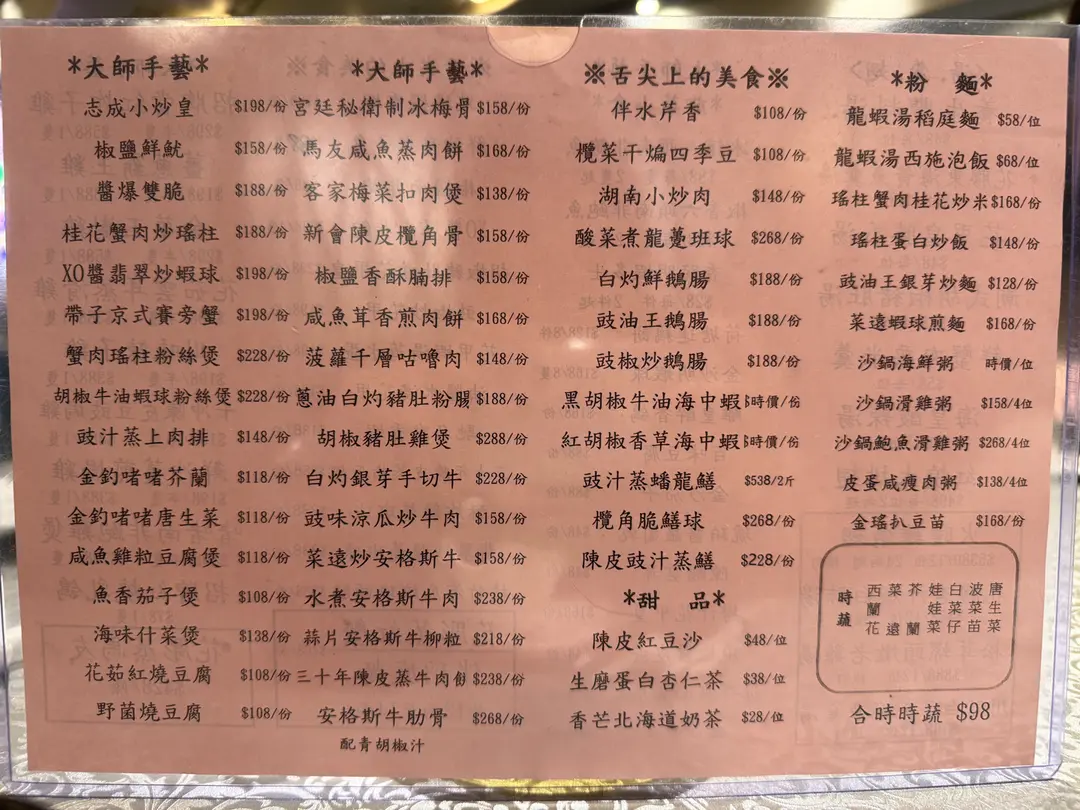 *大師手藝*
志成小炒皇 $198/份
椒鹽鮮魷 $158/份
醬爆雙脆 $188/份
桂花蟹肉炒瑤柱 $188/份
XO醬翡翠炒蝦球 $198/份
帶子京式賽旁蟹 $198/份
蟹肉瑤柱粉絲煲 $228/份
胡椒牛油蝦球粉絲煲 $228/份
豉汁蒸上肉排 $148/份
金釣啫啫芥蘭 $118/份
金釣啫啫唐生菜 $118/份
咸魚雞粒豆腐煲 $118/份
魚香茄子煲 $108/份
海味什菜煲 $138/份
花茹紅燒豆腐 $108/份
野菌燒豆腐 $108/份
*大師手藝*
宮廷秘衛制冰梅骨 $158/份
馬友咸魚蒸肉餅 $168/份
客家梅菜扣肉煲 $138/份
新會陳皮欖角骨 $158/份
椒鹽香酥腩排 $158/份
咸魚茸香煎肉餅 $168/份
菠蘿千層咕嚕肉 $148/份
蔥油白灼豬肚粉腸 $188/份
胡椒豬肚雞煲 $288/份
白灼銀芽手切牛 $228/份
豉味涼瓜炒牛肉 $158/份
菜遠炒安格斯牛 $158/份
水煮安格斯牛肉 $238/份
蒜片安格斯牛柳粒 $218/份
三十年陳皮蒸牛肉餅 $238/份
安格斯牛肋骨 $268/份
配青胡椒汁
※舌尖上的美食※
伴水芹香 $108/份
欖菜干煸四季豆 $108/份
湖南小炒肉 $148/份
酸菜煮龍躉班球 $268/份
白灼鮮鵝腸 $188/份
豉油王鵝腸 $188/份
豉椒炒鵝腸 $188/份
黑胡椒牛油海中蝦 $時價/份
紅胡椒香草海中蝦 $時價/份
豉汁蒸蟠龍鱔 $538/2斤
欖角脆鱔球 $268/份
陳皮豉汁蒸鱔 $228/份
*甜 品*
陳皮紅豆沙 $48/位
生磨蛋白杏仁茶 $38/位
香芒北海道奶茶 $28/位
*粉 麵*
龍蝦湯稻庭麵 $58/位
龍蝦湯西施泡飯 $68/位
瑤柱蟹肉桂花炒米 $168/份
瑤柱蛋白炒飯 $148/份
豉油王銀芽炒麵 $128/份
菜遠蝦球煎麵 $168/份
沙鍋海鮮粥 時價/位
沙鍋滑雞粥 $158/4位
沙鍋鮑魚滑雞粥 $268/4位
皮蛋咸瘦肉粥 $138/4位
金瑤扒豆苗 $168/份
時蔬
唐生菜
波菜苗
白菜仔
娃娃菜
芥蘭
菜遠
西蘭花
合時時蔬 $98